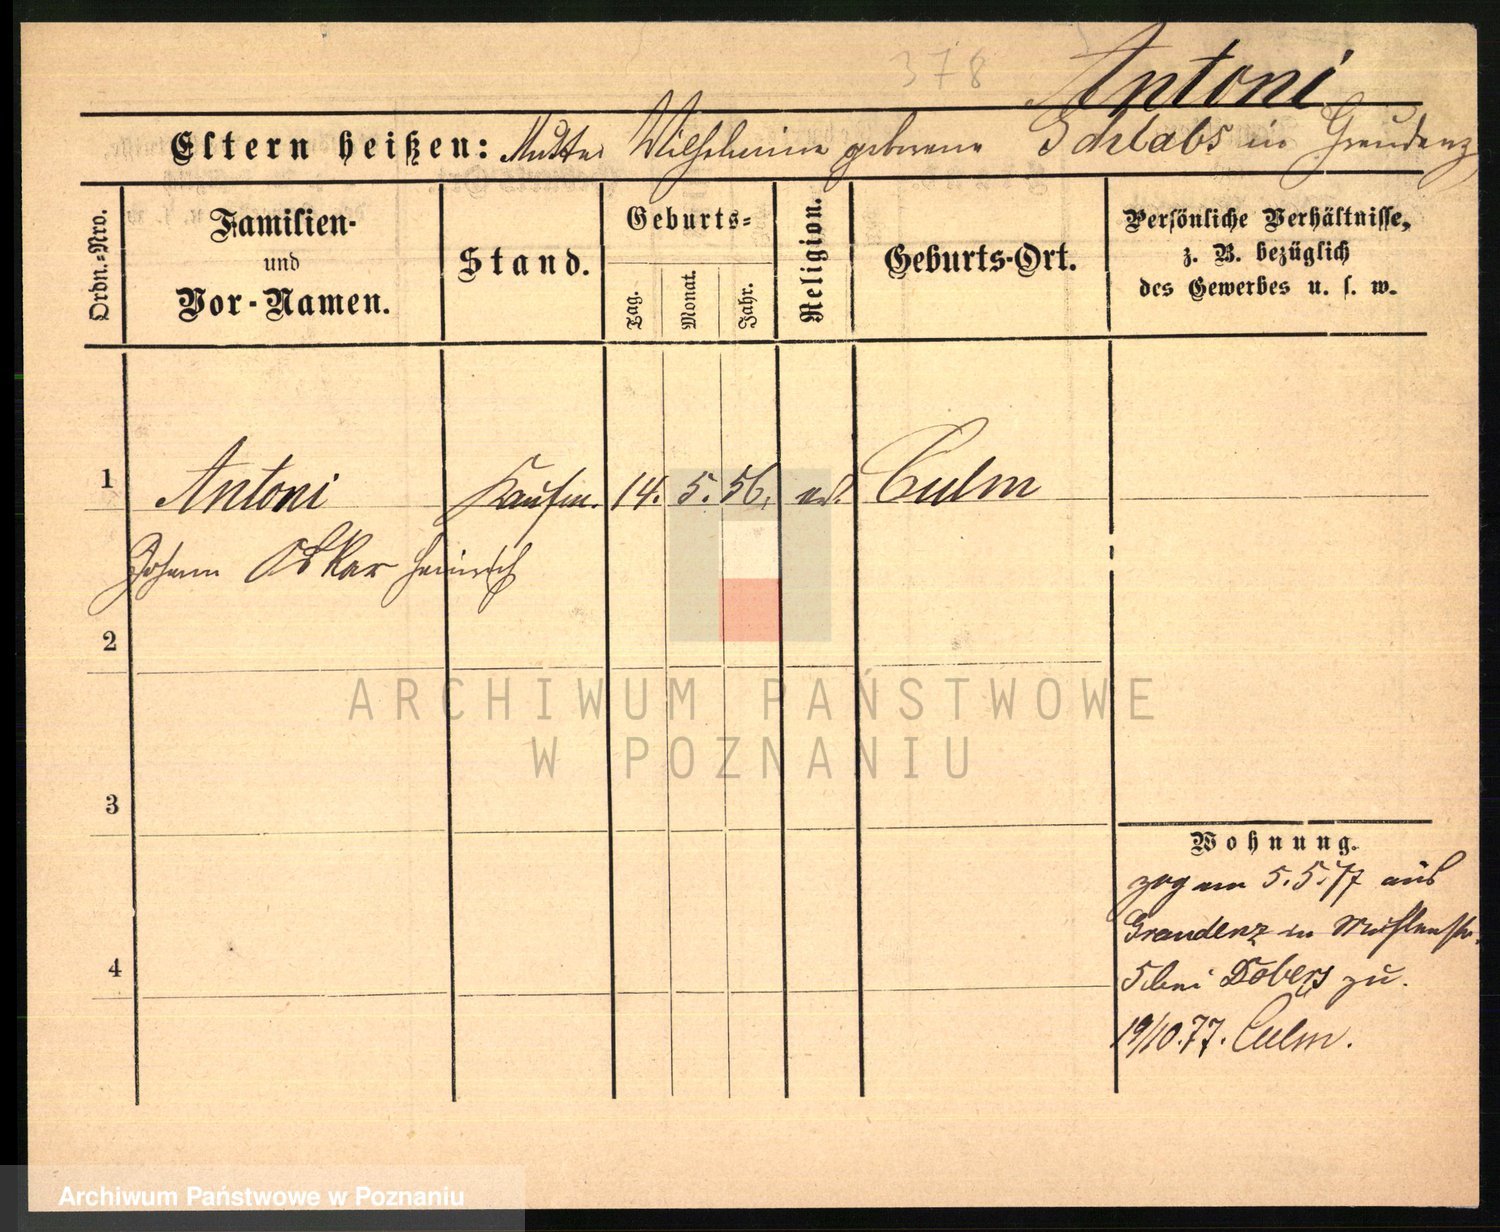 378
Antoni
Eltern heißen: Mutter Wilhelmine geborene Schlabs in Graudenz
Ordn.-Nro.
Familien-
und
Vor-Namen.
Stand.
Geburts-
Tag.
Monat.
Jahr.
Religion.
Geburts-Ort.
Persönliche Verhältnisse,
z. B. bezüglich
des Gewerbes u. s. w.
1 Antoni Kaufm. 14. 5. 56. Culm
Johann Oskar Heinrich
2
ARCHIWUM PAŃSTWOWE
W POZNANIU
3
Wohnung.
zog am 5.5.77 aus
Graudenz in Mühlenstr.
5 bei Dobers zu.
19/10.77. Culm.
4
Archiwum Państwowe w Poznaniu